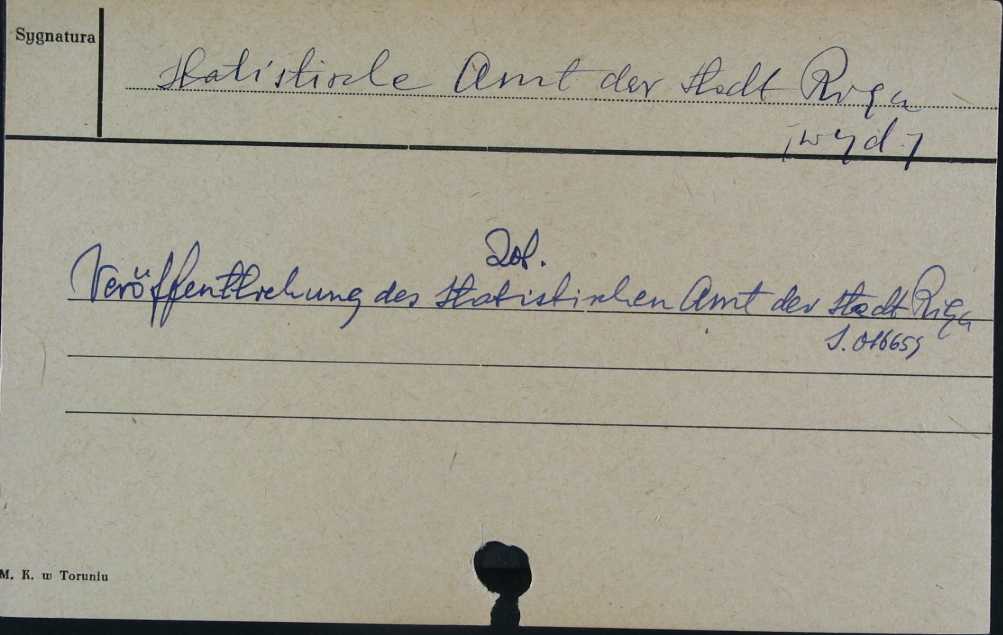 Sygnatura
Statistische Amt der Stadt Riga
(wyd.)
Zob.
Veröffentlichung des Statistischen Amt der Stadt Riga
S. 016655
M. K. w Toruniu